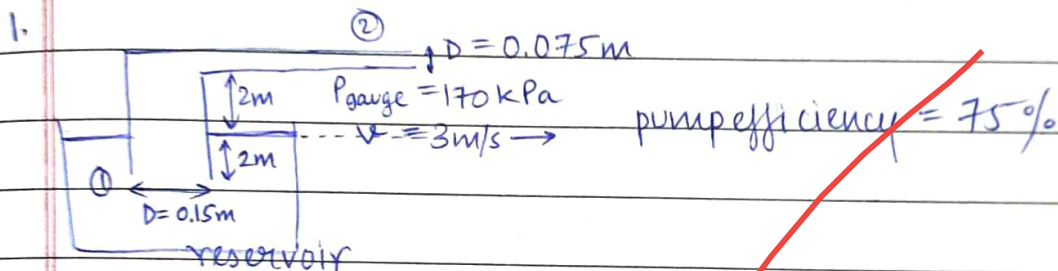 1.
②
D = 0.075m
2m Pgauge = 170 kPa
pump efficiency = 75%
V = 3m/s
2m
①
D = 0.15m
reservoir